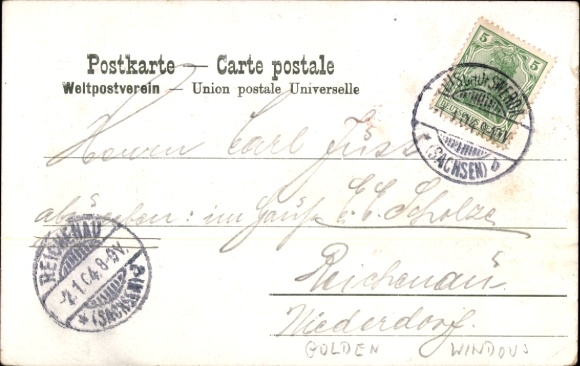 Postkarte — Carte postale
Weltpostverein — Union postale Universelle
5
DEUTSCHES
(SACHSEN) b
Herrn Carl Jus
abzugeben: im Hause C. E. Scholze
Reichenau
Niederdorf.
REICHENAU
-2.1.04. 8-9V.
* (SACHSEN)
GOLDEN WINDOWS